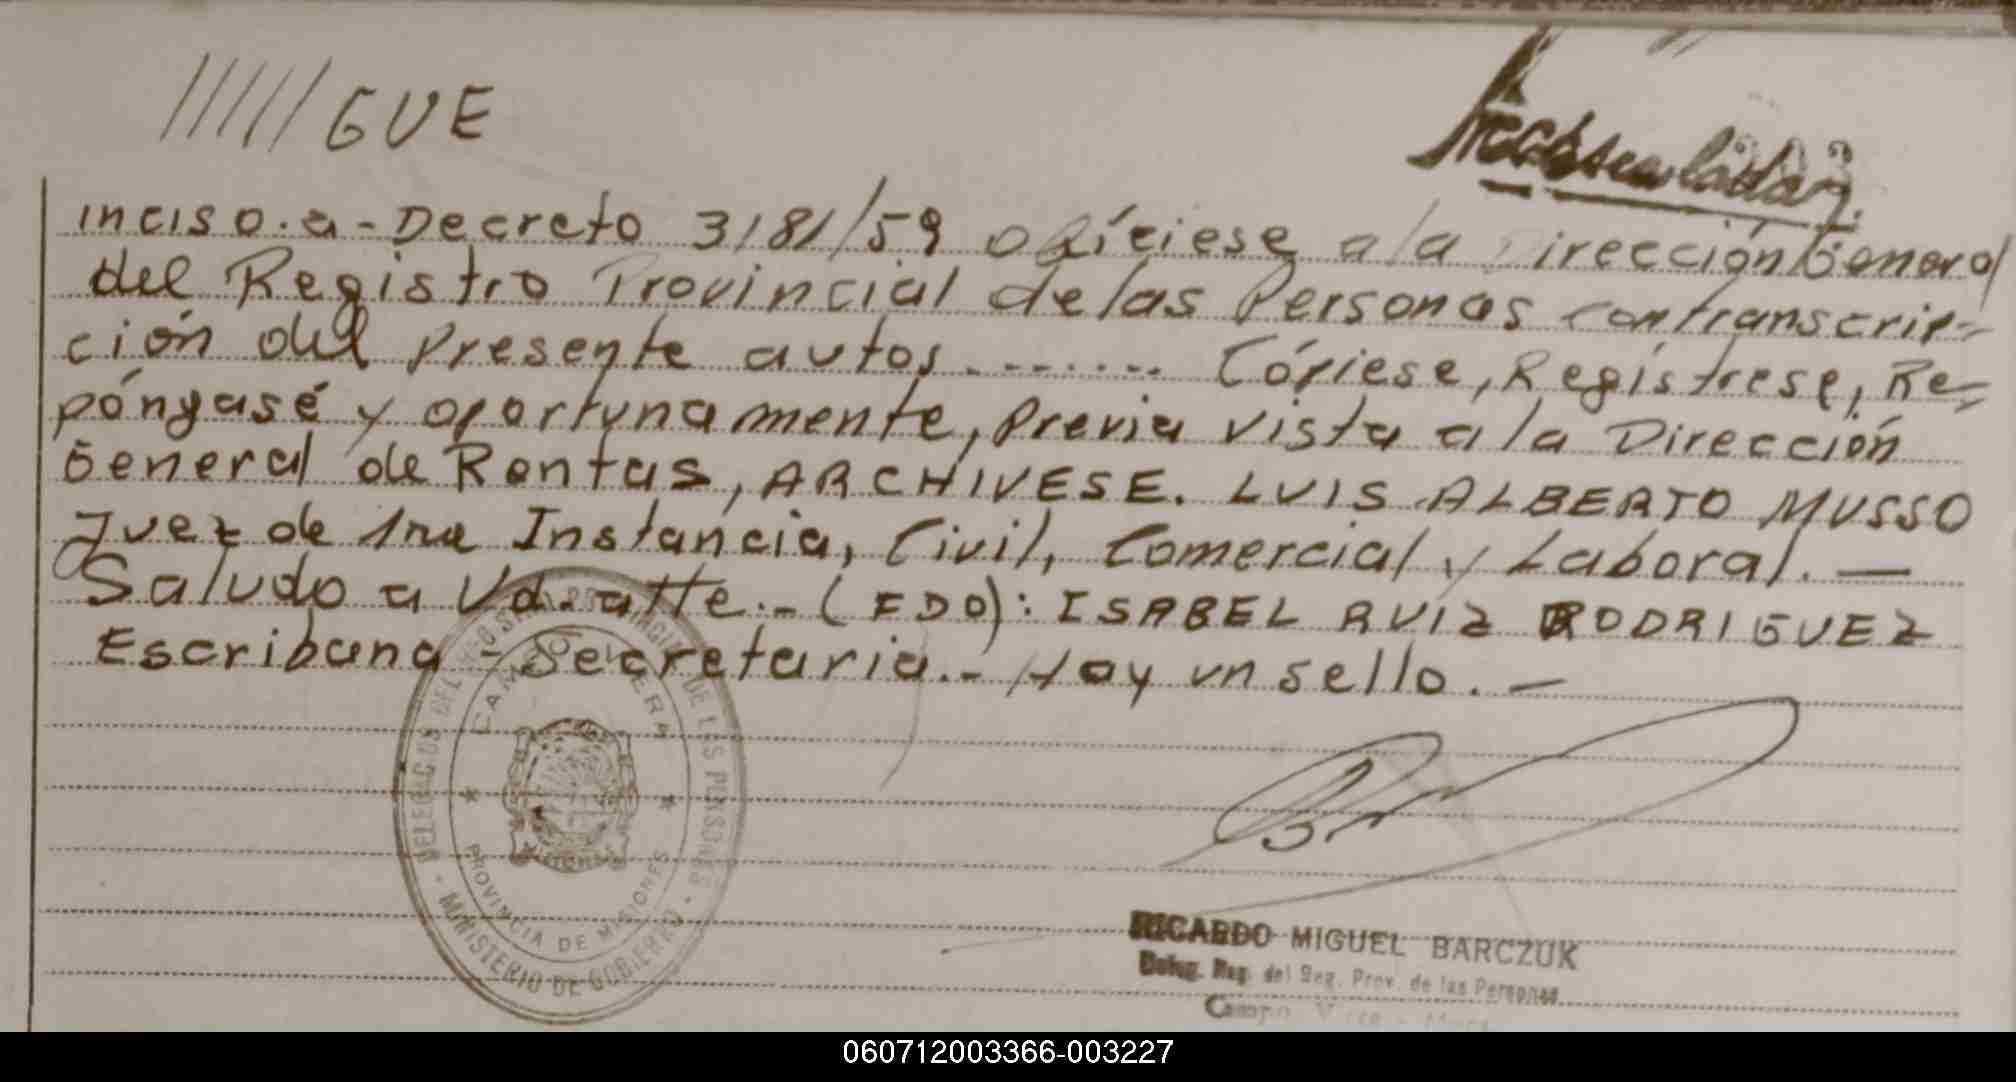 //////GUE
inciso.a-Decreto 3181/59 ofíciese a la Dirección General
del Registro Provincial de las Personas con transcrip=
ción del presente autos........ Cópiese, Regístrese, Re=
póngasé y oportunamente, previa vista a la Dirección
General de Rentas, ARCHIVESE. LUIS ALBERTO MUSSO
Juez de 1ra Instancia, Civil, Comercial y Laboral. —
Saludo a Vd. atte.- (FDO): ISABEL RUIZ RODRIGUEZ
Escribana - Secretaria.- Hay un sello. —
PROVINCIA DE MISIONES
MINISTERIO DE GOBIERNO
RICARDO MIGUEL BARCZUK
Deleg. Reg. del Reg. Prov. de las Personas
Campo
060712003366-003227